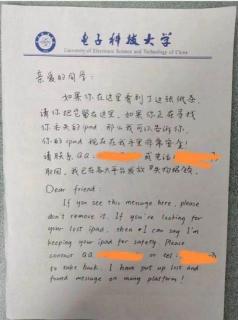 电子科技大学
University of Electronic Science and Technology of China
亲爱的同学：
如果你在这里看到了这张纸条，
请你把它留在这里，如果你正在寻找
你丢失的ipad，那么我可以告诉你，
你的ipad现在在我手里非常安全！
请联系QQ： 或电话
取回，我已在各大平台发放"失物招领"
Dear friend:
If you see this message here, please
don't remove it. If you're looking for
your lost ipad, then I can say I'm
keeping your ipad for safety. Please
contact QQ or tel:
to take back. I have put up lost and
found message on many platform!